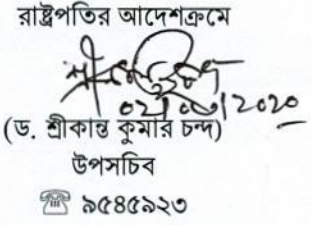 রাষ্ট্রপতির আদেশক্রমে
(ড. শ্রীকান্ত কুমার চন্দ)
উপসচিব
☏ ৯৫৪৫৯২৩